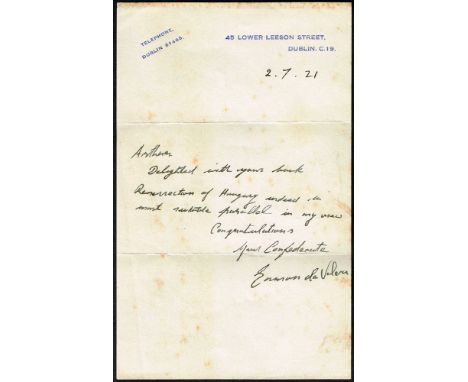 TELEPHONE,
DUBLIN 61485.
45 LOWER LEESON STREET,
DUBLIN. C.19.
2.7.21
Arthur
Delighted with your book
Resurrection of Hungary indeed a
most suitable parallel in my view
Congratulations
Your Confederate
Eamon de Valera